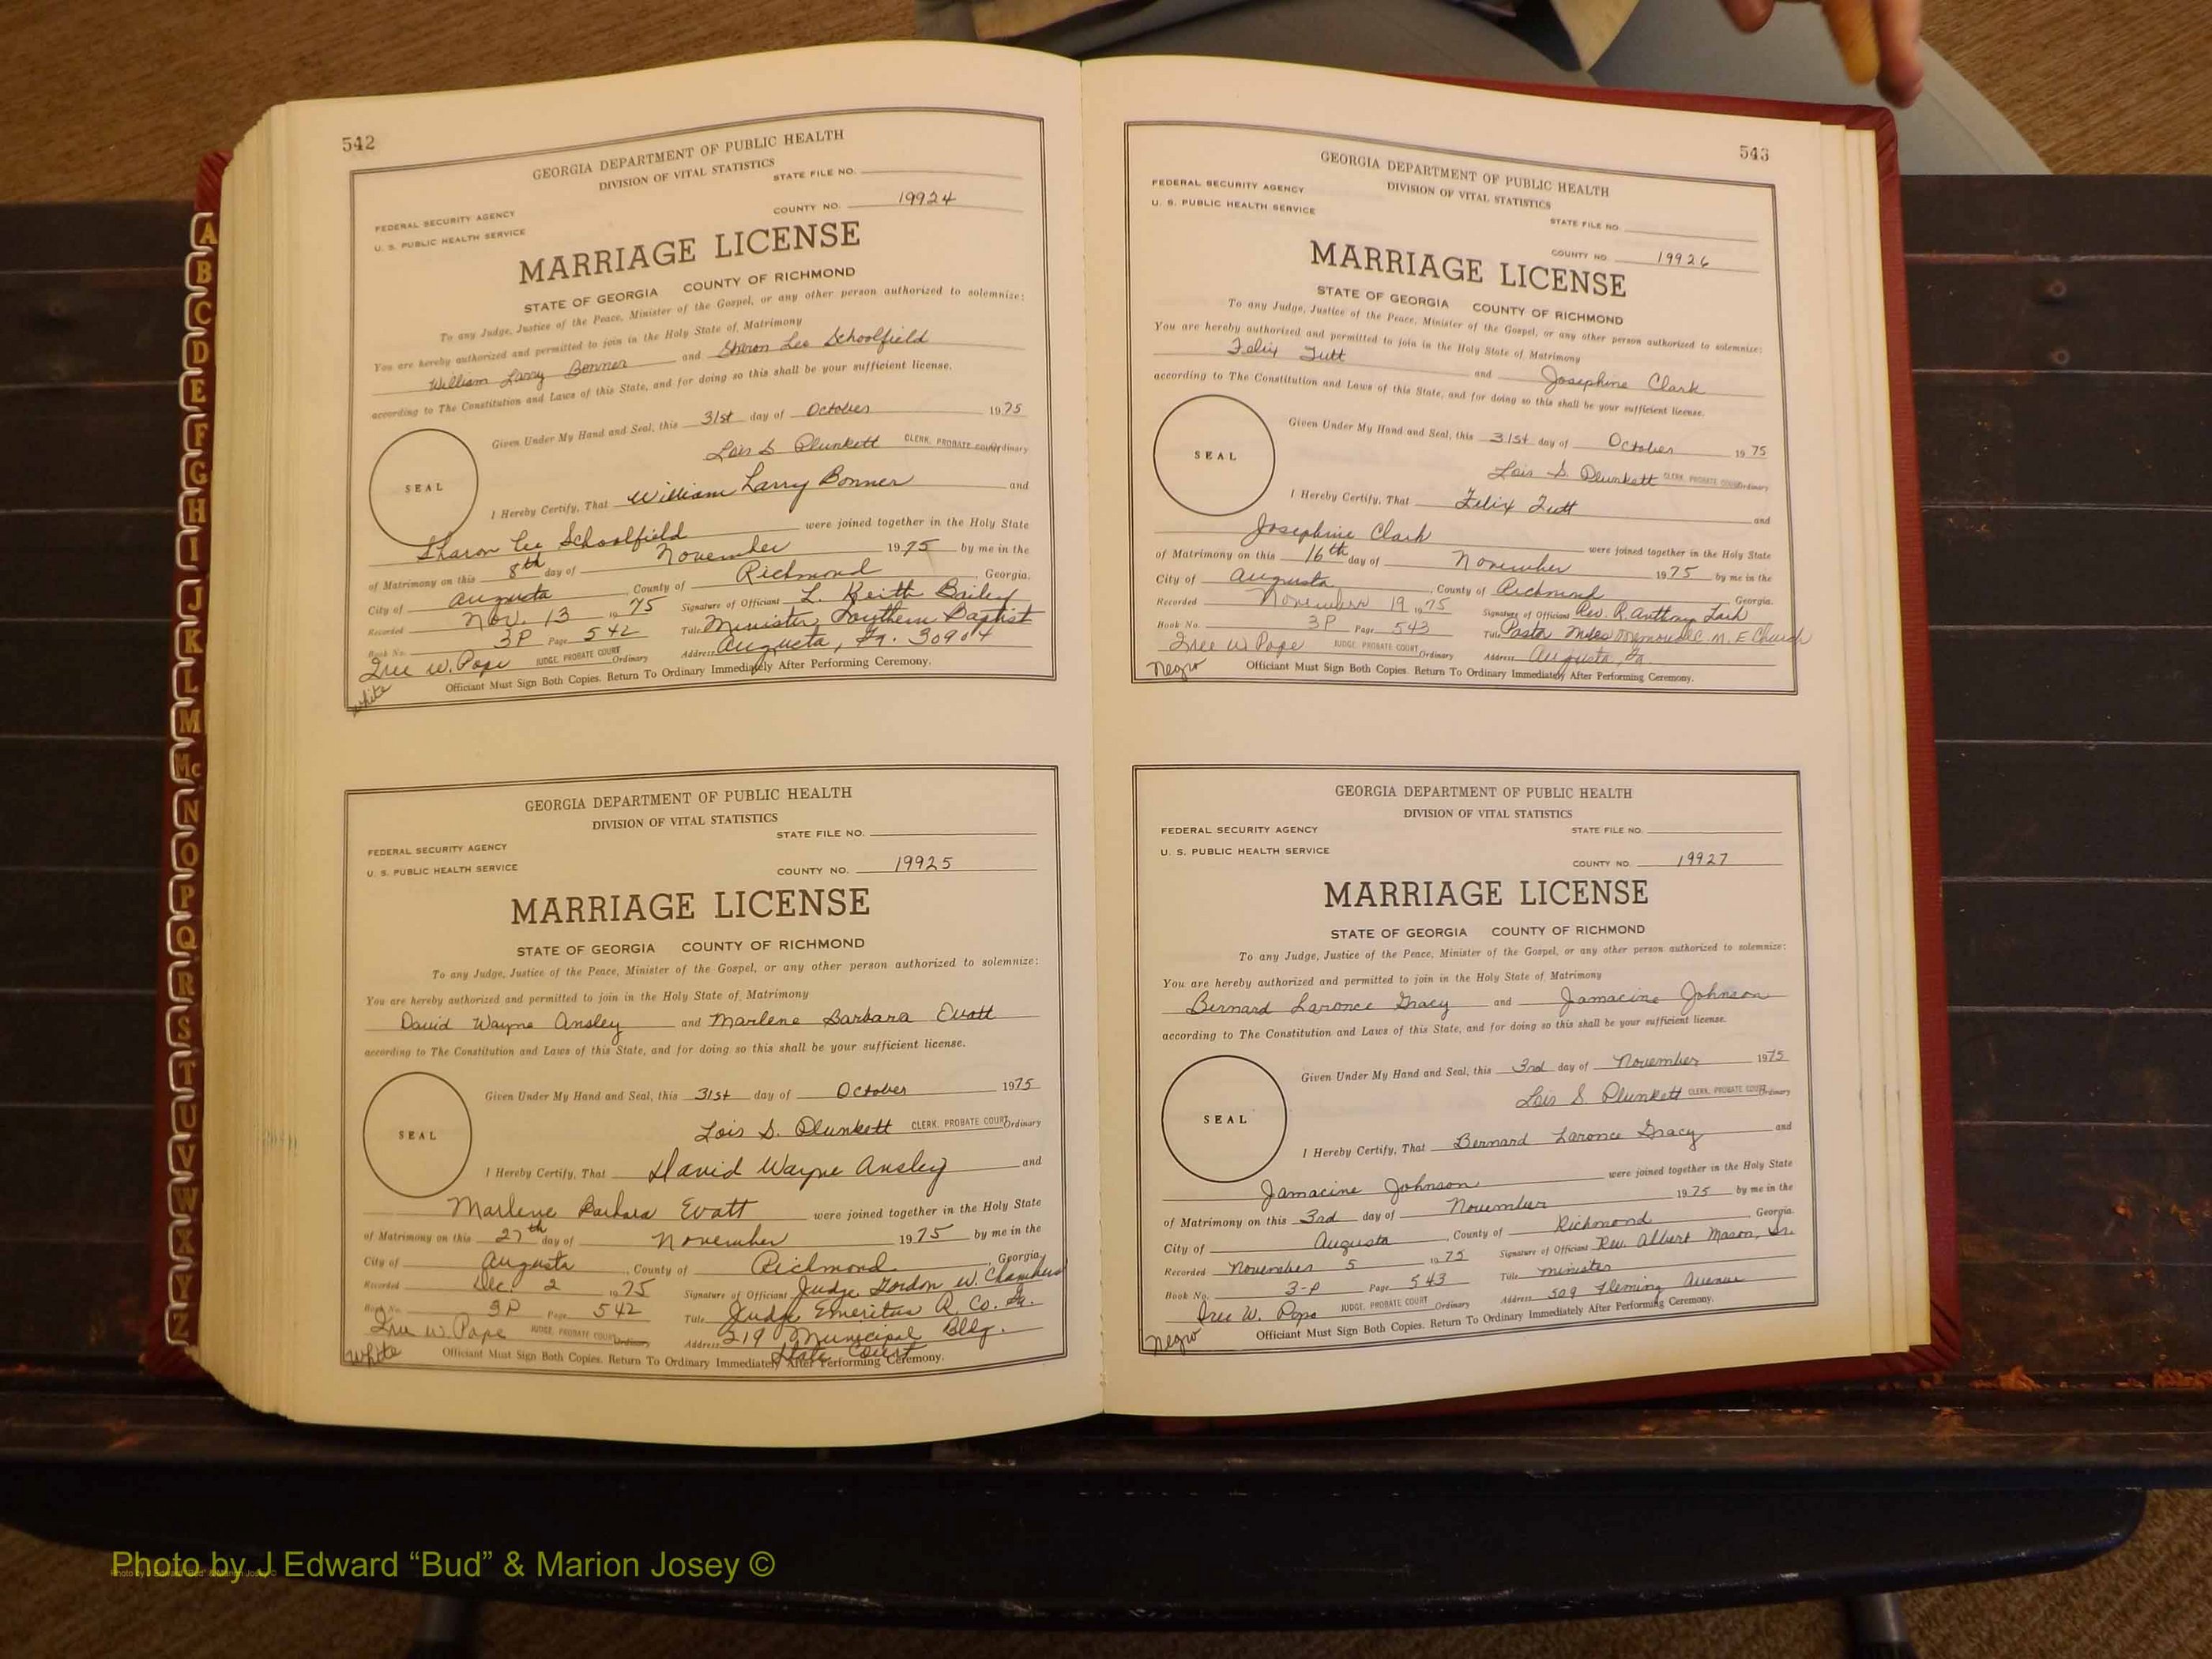 542
GEORGIA DEPARTMENT OF PUBLIC HEALTH
DIVISION OF VITAL STATISTICS
STATE FILE NO.
FEDERAL SECURITY AGENCY
U. S. PUBLIC HEALTH SERVICE
COUNTY NO. 19924
MARRIAGE LICENSE
STATE OF GEORGIA COUNTY OF RICHMOND
To any Judge, Justice of the Peace, Minister of the Gospel, or any other person authorized to solemnize:
You are hereby authorized and permitted to join in the Holy State of Matrimony
William Larry Bonner and Sharon Lee Schoolfield
according to The Constitution and Laws of this State, and for doing so this shall be your sufficient license.
Given Under My Hand and Seal, this 31st day of October 1975
Lois S. Plunkett CLERK, PROBATE COURT Ordinary
SEAL
I Hereby Certify, That William Larry Bonner and
Sharon Lee Schoolfield were joined together in the Holy State
of Matrimony on this 8th day of November 1975 by me in the
City of Augusta, County of Richmond, Georgia.
Recorded Nov. 13 1975 Signature of Officiant L. Keith Bailey
Book No. 3P Page 542 Title Minister, Southern Baptist
Iree W. Pope JUDGE, PROBATE COURT Ordinary Address Augusta, Ga. 30904
Officiant Must Sign Both Copies. Return To Ordinary Immediately After Performing Ceremony.
White
GEORGIA DEPARTMENT OF PUBLIC HEALTH
DIVISION OF VITAL STATISTICS
STATE FILE NO.
FEDERAL SECURITY AGENCY
U. S. PUBLIC HEALTH SERVICE
COUNTY NO. 19925
MARRIAGE LICENSE
STATE OF GEORGIA COUNTY OF RICHMOND
To any Judge, Justice of the Peace, Minister of the Gospel, or any other person authorized to solemnize:
You are hereby authorized and permitted to join in the Holy State of Matrimony
David Wayne Ansley and Marlene Barbara Evatt
according to The Constitution and Laws of this State, and for doing so this shall be your sufficient license.
Given Under My Hand and Seal, this 31st day of October 1975
Lois S. Plunkett CLERK, PROBATE COURT Ordinary
SEAL
I Hereby Certify, That David Wayne Ansley and
Marlene Barbara Evatt were joined together in the Holy State
of Matrimony on this 27th day of November 1975 by me in the
City of Augusta, County of Richmond, Georgia
Recorded Dec. 2 1975 Signature of Officiant Judge Gordon W. Chambers
Book No. 3P Page 542 Title Judge Emeritus R. Co. Ga.
Iree W. Pope JUDGE, PROBATE COURT Ordinary Address 219 Municipal Bldg.
State Court
White Officiant Must Sign Both Copies. Return To Ordinary Immediately After Performing Ceremony.
543
GEORGIA DEPARTMENT OF PUBLIC HEALTH
DIVISION OF VITAL STATISTICS
FEDERAL SECURITY AGENCY
U. S. PUBLIC HEALTH SERVICE
STATE FILE NO.
COUNTY NO. 19926
MARRIAGE LICENSE
STATE OF GEORGIA COUNTY OF RICHMOND
To any Judge, Justice of the Peace, Minister of the Gospel, or any other person authorized to solemnize:
You are hereby authorized and permitted to join in the Holy State of Matrimony
Felix Tutt and Josephine Clark
according to The Constitution and Laws of this State, and for doing so this shall be your sufficient license.
Given Under My Hand and Seal, this 31st day of October 1975
Lois S. Plunkett CLERK, PROBATE COURT Ordinary
SEAL
I Hereby Certify, That Felix Tutt and
Josephine Clark were joined together in the Holy State
of Matrimony on this 16th day of November 1975 by me in the
City of Augusta, County of Richmond Georgia.
Recorded November 19 1975 Signature of Officiant Rev. R. Anthony
Book No. 3P Page 543 Title Pastor Miles Memorial C. M. E Church
Iree W Pope JUDGE, PROBATE COURT Ordinary Address Augusta, Ga.
Negro Officiant Must Sign Both Copies. Return To Ordinary Immediately After Performing Ceremony.
GEORGIA DEPARTMENT OF PUBLIC HEALTH
DIVISION OF VITAL STATISTICS
FEDERAL SECURITY AGENCY STATE FILE NO.
U. S. PUBLIC HEALTH SERVICE
COUNTY NO. 19927
MARRIAGE LICENSE
STATE OF GEORGIA COUNTY OF RICHMOND
To any Judge, Justice of the Peace, Minister of the Gospel, or any other person authorized to solemnize:
You are hereby authorized and permitted to join in the Holy State of Matrimony
Bernard Laronce Gracy and Jamacine Johnson
according to The Constitution and Laws of this State, and for doing so this shall be your sufficient license.
Given Under My Hand and Seal, this 3rd day of November 1975
Lois S. Plunkett CLERK, PROBATE COURT Ordinary
SEAL
I Hereby Certify, That Bernard Laronce Gracy and
Jamacine Johnson were joined together in the Holy State
of Matrimony on this 3rd day of November 1975 by me in the
City of Augusta, County of Richmond Georgia.
Recorded November 5 1975 Signature of Officiant Rev. Albert Mason, Sr.
Book No. 3-P Page 543 Title Minister
Iree W. Pope JUDGE, PROBATE COURT Ordinary Address 509 Fleming Avenue
Negro Officiant Must Sign Both Copies. Return To Ordinary Immediately After Performing Ceremony.
A
B
C
D
E
F
G
H
I
J
K
L
M
Mc
N
O
P
Q
R
S
T
U
V
W
X
Y
Z
Photo by J Edward “Bud” & Marion Josey ©
Photo by J Edward "Bud" & Marion Josey ©